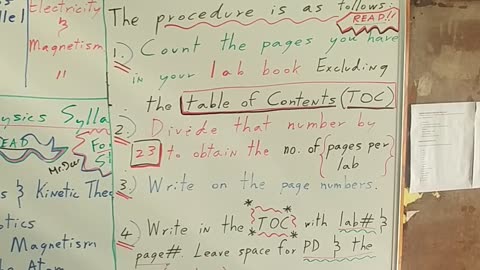 Electricity
&
Magnetism
"
Physics Sylla
READ
Mr. Dav
& Kinetic The
Magnetism
The procedure is as follows:
READ!!
1.) Count the pages you have
in your lab book Excluding
the table of Contents (TOC)
2.) Divide that number by
23 to obtain the no. of {pages per
lab}
3.) Write on the page numbers.
4.) Write in the *TOC* with lab# &
page#. Leave space for PD & the